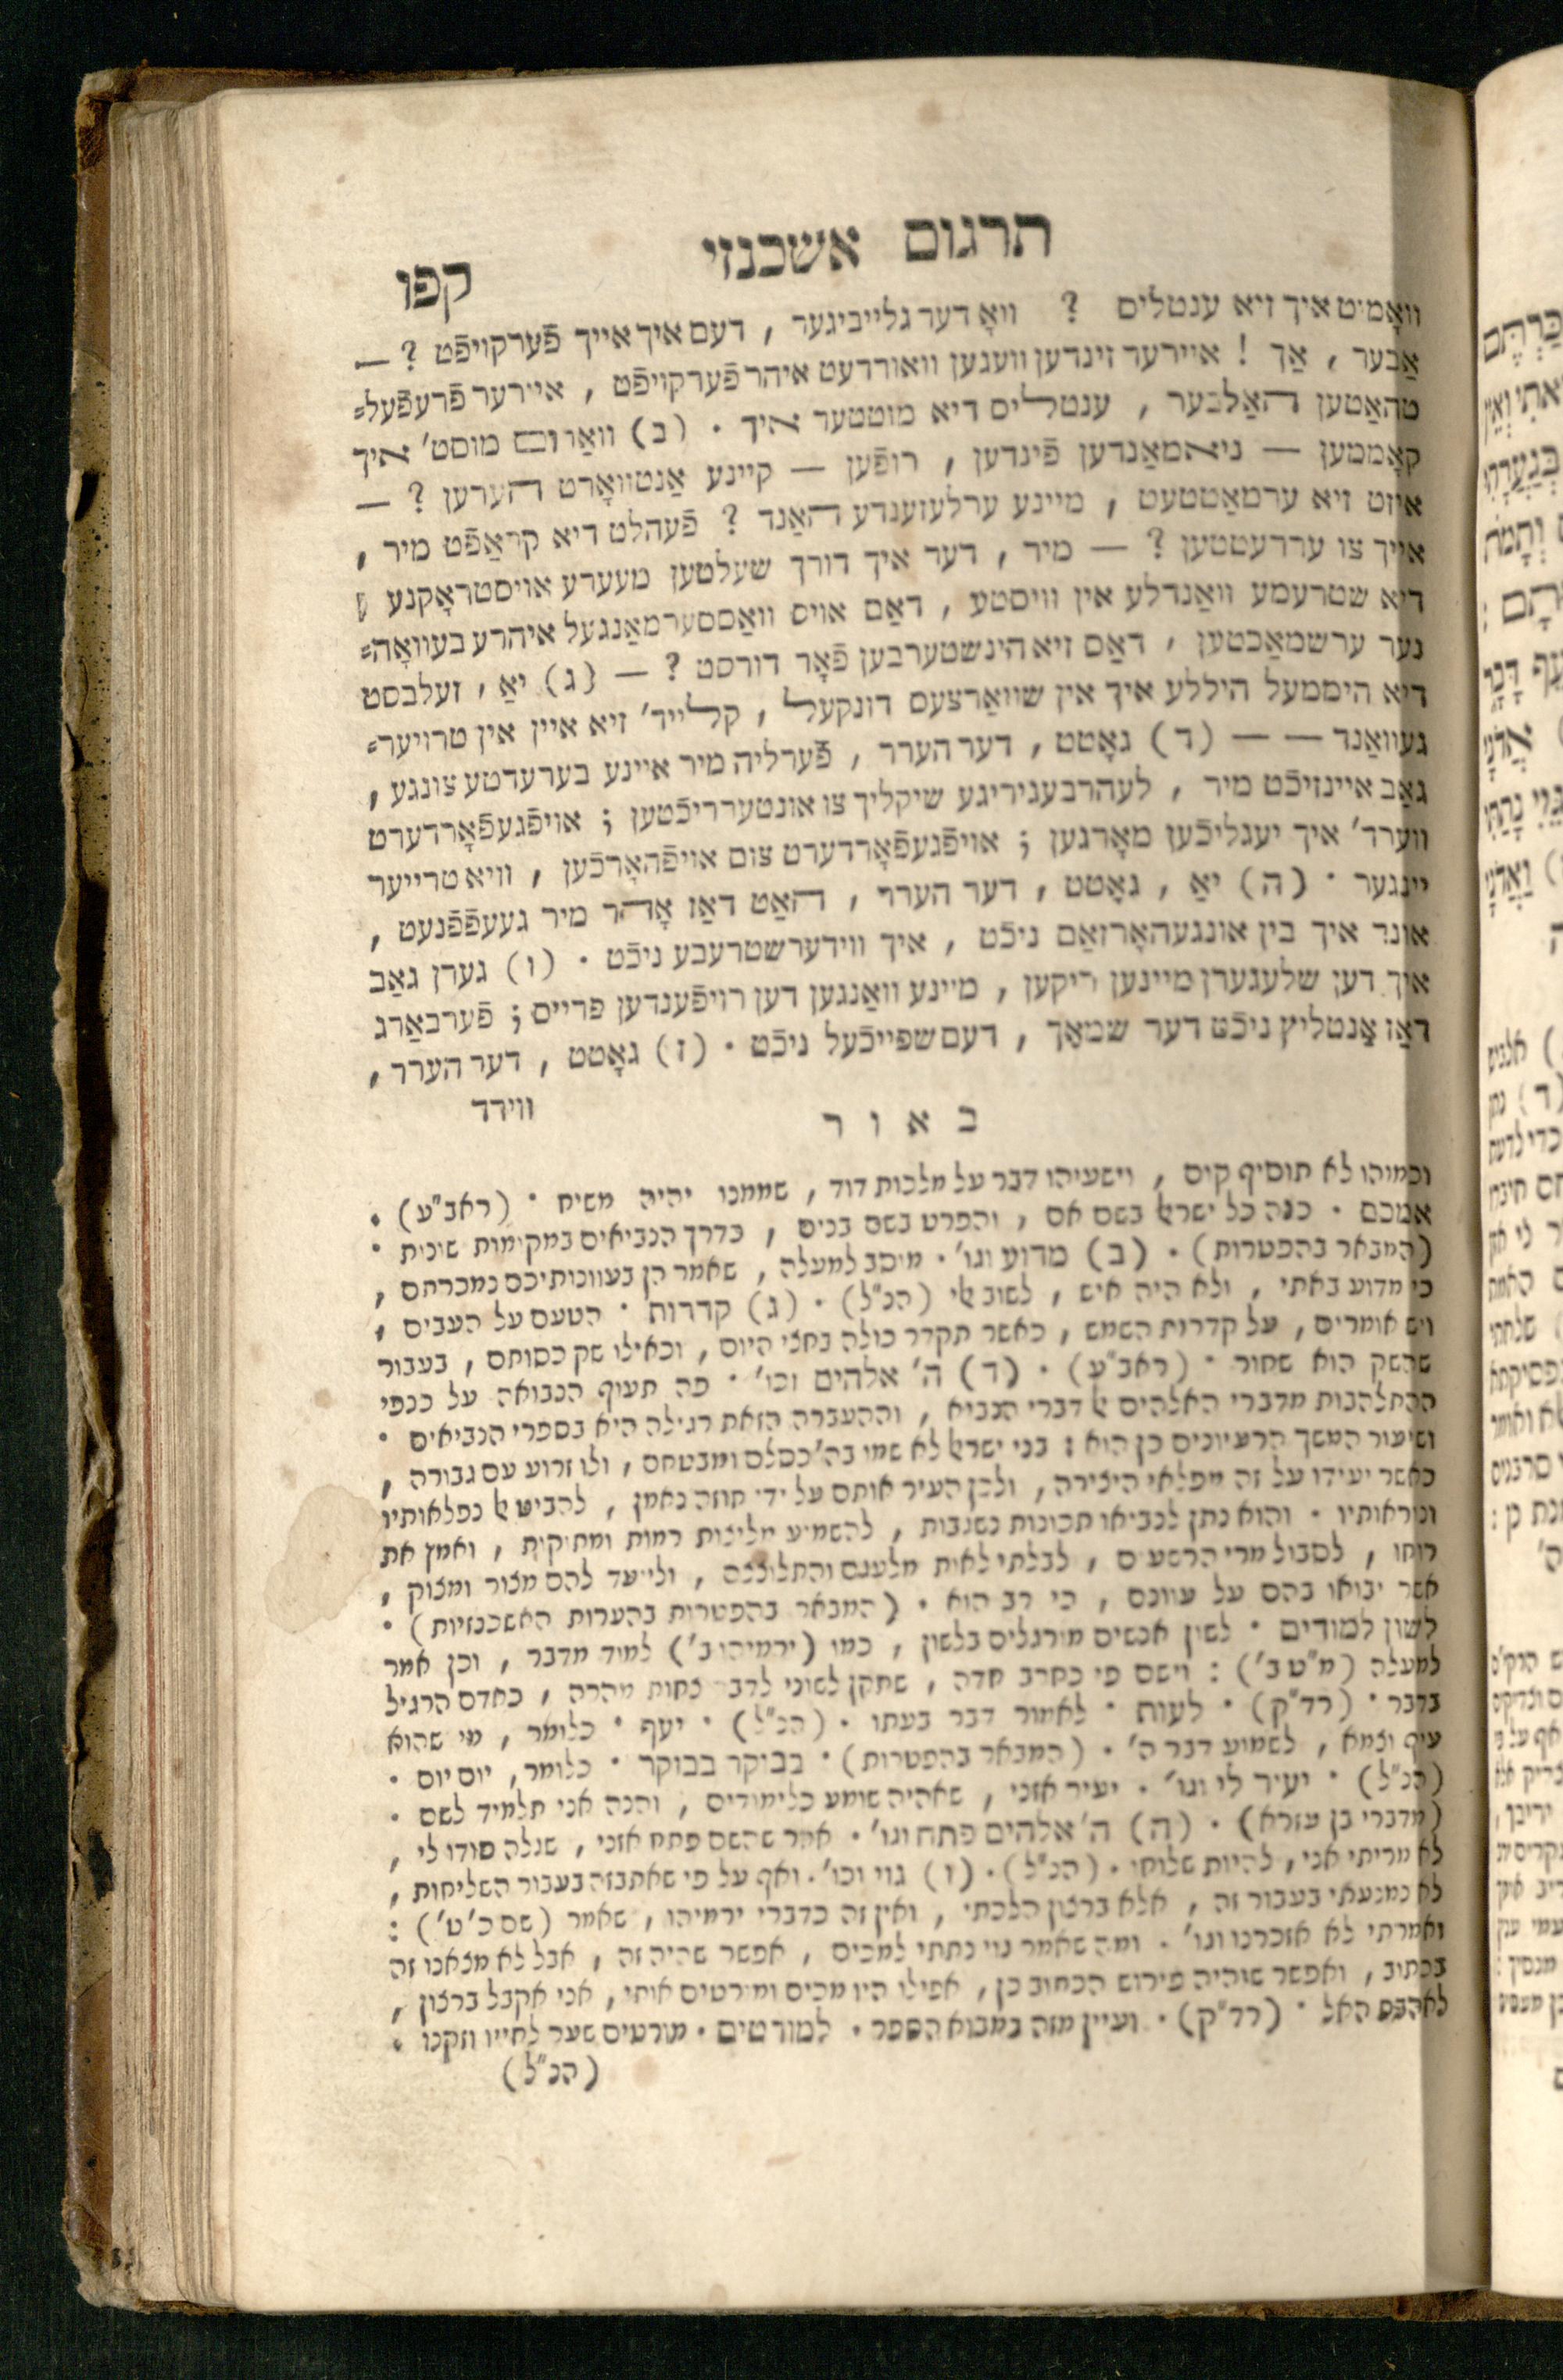 תרגום אשכנזי
קפו
וואָמיט איך זיא ענטליס ? וואָ דער גלייביגער , דעם איך אייך פֿערקויפֿט ? —
אַבער , אַך ! אייערער זינדען וועגען וואורדעט איהר פֿערקויפֿט , אייערער פֿרעפֿעל=
טהאַטען האַלבער , ענטליס דיא מוטטער איך . (ב) וואַרום מוסט' איך
קאָממען — ניאמאַנדען פֿינדען , רופֿען — קיינע אַנטוואָרט הערען ? —
איזט זיא ערמאַטטעט , מיינע ערלעזענדע האַנד ? פֿעהלט דיא קראַפֿט מיר ,
אייך צו עררעטטען ? — מיר , דער איך דורך שעלטען מעערע אויסטראָקנע ,
דיא שטרעמע וואַנדלע אין וויסטע , דאַם אויס וואַססערמאַנגעל איהרע בעוואָה=
נער ערשמאַכטען , דאַס זיא הינשטערבען פֿאָר דורסט ? — (ג) יאַ , זעלבסט
דיא היממעל היללע איך אין שוואַרצעס דונקעל , קלייד' זיא איין אין טרויער=
געוואַנד — — (ד) גאָטט , דער הערר , פֿערליה מיר איינע בערעדטע צונגע ,
גאַב איינזיכֿט מיר , לעהרבעגיריגע שיקליך צו אונטערריכֿטען ; אויפֿגעפֿאָרדערט
ווערד' איך יעגליכֿען מאָרגען ; אויפֿגעפֿאָרדערט צום אויפֿהאָרכֿען , וויא טרייער
יינגער . (ה) יאַ , גאָטט , דער הערר , האַט דאַז אָהר מיר געעפֿפֿנעט ,
אונד איך בין אונגעהאָרזאַם ניכֿט , איך ווידערשטרעבע ניכֿט . (ו) גערן גאַב
איך דען שלעגערן מיינען ריקען , מיינע וואַנגען דען רויפֿענדען פרייס ; פֿערבאַרג
דאַז אַנטליץ ניכֿט דער שמאַך , דעם שפייכֿעל ניכֿט . (ז) גאָטט , דער הערר ,
ווירד
באור
וכמוהו לא תוסיף קום , וישעיהו דבר על מלכות דוד , שממנו יהיה משיח . (ראב"ע) .
אמכם . כנה כל ישראל בשם אם , והפרט בשם בנים , כדרך הנביאים במקומות שונית .
(המבאר בהפטרות) . (ב) מדוע וגו' . מוסב למעלה , שאמר הן בעונותיכם נמכרתם ,
כי מדוע באתי , ולא היה איש , לשוב אלי (הנ"ל) . (ג) קדרות . הטעם על העבים ,
ויש אומרים , על קדרות השמש , כאשר תקדר כולה בחצי היום , וכאילו שק כסותם , בעבור
שהשק הוא שחור . (ראב"ע) . (ד) ה' אלהים וכו' . פה תעוף הנבואה על כנפי
ההתלהבות מדברי האלהים אל דברי הנביא , וההעברה הזאת רגילה היא בספרי הנביאים .
ושיעור המשך הרעיונים כן הוא : בני ישראל לא שמו בה' כסלם ומבטחם , ולו זרוע עם גבורה ,
כאשר יעידו על זה מפלאי היצירה , ולכן העיר אותם על ידי חוזה נאמן , להביט אל נפלאותיו
ונוראותיו . והוא נתן לנביאו תכונות נשגבות , להשמיע מליצות רמות ומתוקות , ואמץ את
רוחו , לסבול מרי הרשעים , לבלתי לאות מלעגם והתלוצצה , ולייעד להם מצור ומצוק ,
אשר יבואו בהם על עוונם , כי רב הוא . (המבאר בהפטרות בהערות האשכנזיות) .
לשון למודים . לשון אנשים מורגלים בלשון , כמו (ירמיהו ב') למוד מדבר , וכן אמר
למעלה (מ"ט ב') : וישם פי כחרב חדה , שתקן לשוני לדבר צחות מהרה , כאדם הרגיל
בדבר . (רד"ק) . לעות . לאמור דבר בעתו . (הנ"ל) . יעף . כלומר , מי שהוא
עיף וצמא , לשמוע דבר ה' . (המבאר בהפטרות) . בבוקר בבוקר . כלומר , יום יום .
(הנ"ל) . יעיר לי וגו' . יעיר אזני , שאהיה שומע כלימודים , והנה אני תלמיד לשם .
(מדברי בן עזרא) . (ה) ה' אלהים פתח וגו' . אמר שהשם פתח אזני , שגלה סודו לי ,
לא מריתי אני , להיות שלוחו . (הנ"ל) . (ו) גוי וכו' . ואף על פי שאתבזה בעבור השליחות ,
לא נמנעתי בעבור זה , אלא ברצון הלכתי , ואין זה כדברי ירמיהו , שאמר (שם כ' ט') :
ואמרתי לא אזכרנו וגו' . ומה שאמר גוי נתתי למכים , אפשר שהיה זה , אבל לא מצאנו זה
בכתוב , ואפשר שיהיה פירוש הכתוב כן , אפילו היו מכים ומורטים אותי , אני אקבל ברצון ,
לאהבת האל . (רד"ק) . ועיין מזה במבוא הספר . למורטים . מורטים שער לחייו וזקנו .
(הנ"ל)